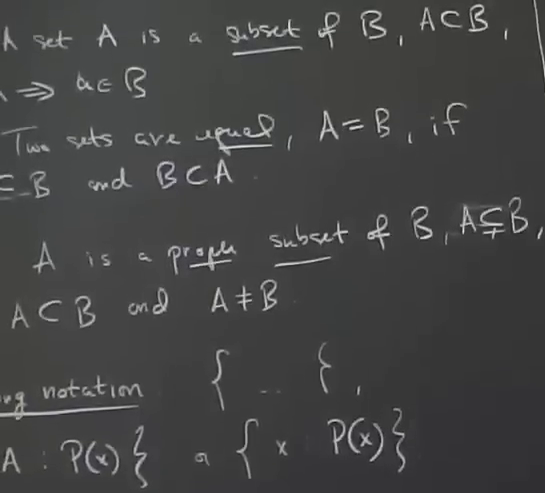 A set A is a subset of B, A⊂B,
⇒ a∈B
Two sets are equal, A=B, if
⊂B and B⊂A.
A is a proper subset of B, A⊊B,
A⊂B and A≠B
ng notation { .. {,
A : P(x)} { x P(x)}